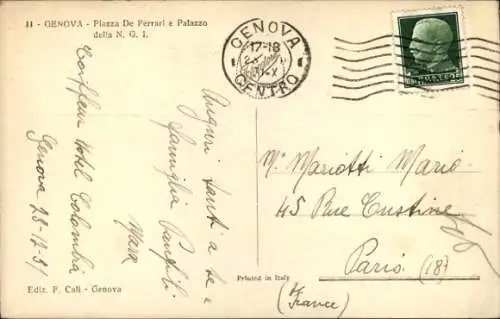 11 - GENOVA - Piazza De Ferrari e Palazzo
della N. G. I.
GENOVA
17-18
CENTRO
Auguri tanti a te e
famiglia
Mara
Coiffeur Hotel Colombia
Genova 28-12-31
Mr Mariotti Mario
45 Rue Custine
Paris (18)
(France)
Printed in Italy
Ediz. F. Cali - Genova